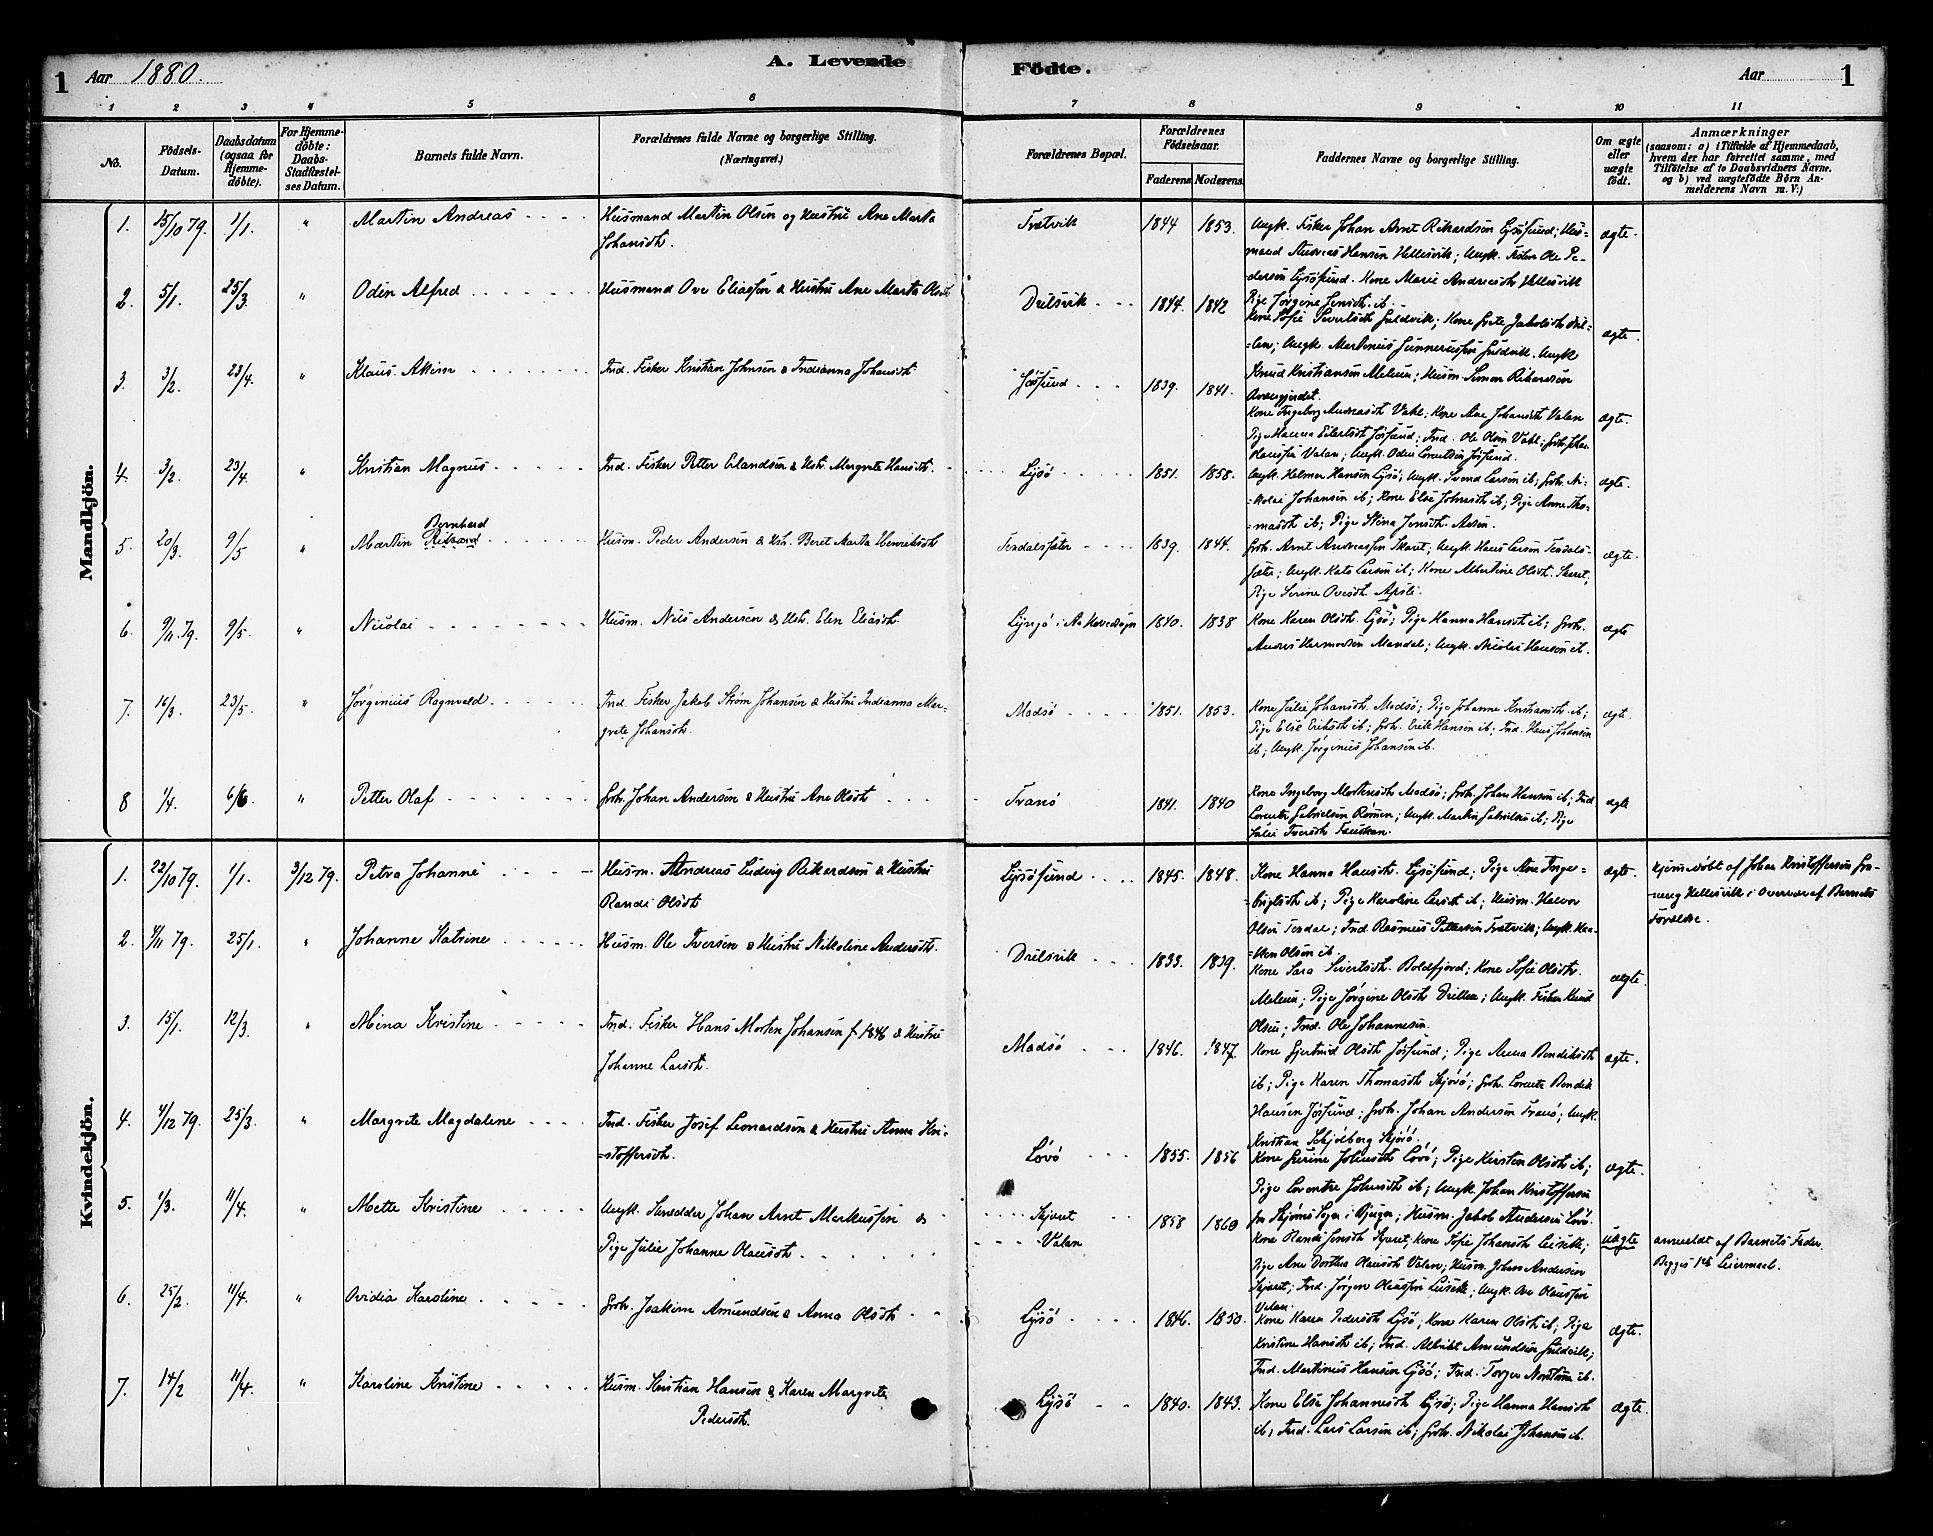 1 Aar 1880. A. Levende Födte. Aar 1
1 2 3 4 5 6 7 8 9 10 11
No.
Födsels-
Datum.
Daabsdatum
(ogsaa for
Hjemme-
döbte).
For Hjemme-
döbte:
Daabs-
Stadfæstel-
ses Datum.
Barnets fulde Navn.
Forældrenes fulde Navne og borgerlige Stilling.
(Næringsvei.)
Forældrenes Bopæl.
Forældrenes
Födselsaar.
Faderens. Moderens.
Faddernes Navne og borgerlige Stilling.
Om ægte
eller
uægte
födt.
Anmærkninger
(saasom: a) i Tilfælde af Hjemmedaab,
hvem der har forrettet samme, med
Tilföielse af to Daabsvidners Navne.
og b) ved uægtefödte Börn An-
melderens Navn m. V.)
Mandkjön.
1. 15/10 79. 1/1. " Martin Andreas Husmand Martin Olsen og Hustru Ane Marta
Johansdt.
Tratvik 1844 1853.
Ungk. Fisker Johan Arnt Rikardsen Lysösund; Hus-
mand Andreas Hansen Hellesvik; Ungk. Ole Pe-
dersen Lysösund. Kone Marie Andreasdt Hellesvik
Pige Jörgine Jensdt. ib.
ægte.
2. 5/1. 25/3. " Odin Alfred Husmand Ove Eliassen & Hustru Ane Marta Olsdt
Drelsvik 1844. 1842
Kone Sofie Sivertsdt Guldvik; Kone Grete Jakobsdt Drel-
-len; Ungk Martinus Gunnerussen Guldvik. Ungk
Knud Kristiansen Melum; Husm. Simon Rikardsen
ægte
3. 3/2. 23/4. " Klaus Akim Ind. Fisker Kristian Johnsen & Indianna Johansdt
Jössund 1839. 1841.
Kone Ingeborg Andreasdt Vahl; Kone Ane Johansdt Valan
Pige Hanna Eilertsdt Jössund; Ind. Ole Olsen Vahl;
Valan; Ungk. Odin Jössund.
ægte.
4. 3/2. 23/4. " Kristian Magnus Ind. Fisker Petter Erlandsen & Ustr. Margrete Hansdt.
Lysö 1851. 1858.
Ungk. Helmer Hansen Lysö; Ungk. Svend Larsen ib; Grbr. Ni-
-kolai Johansen ib; Kone Else Johnsdt ib; Pige Anne Tho-
-masdt ib; Pige Stina Jensdt.
ægte.
5. 20/3. 9/5 " Martin Bernhard
Husm. Peder Andersen & Ustr. Beret Marta Henriksdt
Teksdalssæter 1839. 1844.
Grbr. Arnt Andreassen Skaret; Ungk. Hans Larsen
Ungk. Larsen ib; Kone Albertine Olsdt. Skaret;
Pige Serine Ovesdt.
ægte.
6. 9/11. 79. 9/5. " Nicolai Husm. Nils Andersen & Ustr. Elen Eliasdt.
1840. 1838
Kone Karen Olsdt. Lysö; Pige Hanna Hansdt ib; Grbr.
Anders Hermodsen Mandal; Ungk. Nicolai Hansen ib.
ægte
7. 16/3. 23/5. " Jörginius Ragnvald Ind. Fisker Jakob Ström Johansen & Hustru Indianna Mar-
grete Johansdt.
Madsö 1851. 1853.
Kone Julie Johansdt. Madsö; Pige Johanne Kristiansdt. ib;
Pige Else Eriksdt ib; Grbr. Erik Hansen ib; Ind. Hans Johansen
ib; Ungk. Jörginus Johansen ib.
ægte.
8 1/4. 6/6. " Petter Olaf Grbr. Johan Andersen & Hustru Ane Olsdt
Tranö 1841. 1840
Kone Ingeborg Mortensdt Madsö; Grbr. Johan Hansen ib; Ind
Lorents Gabrielsen; Ungk. Martin Gabrielsen ib; Pige
Julie Iversdt
ægte
Kvindekjön.
1. 22/10 79. 1/1. 3/12 79. Petra Johanne Husm. Andreas Ludvig Rikardsen & Hustru
Randi Olsdt
Lysösund 1845. 1848.
Kone Hanna Hansdt. Lysösund; Pige Ane Inge-
-brigtsdt ib; Pige Karoline Larsdt ib; Husm. Halvor
Olsen Teksdal; Ind. Rasmus Pettersen Tratvik; Ungk. Haa-
-kon Olsen ib.
ægte.
hjemmedöbt af Johan Kristoffersen
Hellesvik i Overvær af Barnets
Forældre.
2. 4/11 79. 25/1. " Johanne Katrine Husm. Ole Iversen & Hustru Nikoline Andersdt.
Drelsvik 1833. 1839.
Kone Sara Sivertsdt. Boldfjord; Kone Sofie Olsdt.
Melum; Pige Jörgine Olsdt Drillen; Ungk. Fisker Knud
Olsen; Ind. Ole Johannesen.
ægte.
3. 15/1. 12/3. " Mina Kristine Ind. Fisker Hans Morten Johansen f 1846 & Hustru
Johanne Larsdt.
Madsö 1846. 1847.
Kone Gjertrud Olsdt Jössund; Pige Anna Bendiksdt
ib; Pige Karen Thomasdt Skjörö; Grbr. Lorents Bendik
Hansen Jössund; Grbr. Johan Andersen Tranö; Ungk.
Kristian Schjölberg Skjörö.
ægte.
4. 4/12 79. 25/3. " Margrete Magdalene Ind. Fisker Josef Leonardsen & Hustru Anna Kri-
=stoffersdt.
Lövö 1855. 1856
Kone Serine Johnsdt Lövö; Pige Kirsten Olsdt ib;
Pige Lorentse Johnsdt ib; Ungk. Johan Kristoffersen
fra Skjörns Sogn i Bjugn; Husm. Jakob Andersen Lövö.
ægte.
5. 1/3. 11/4. " Mette Kristine Ungk. Skrædder Johan Arnt Markussen &
Pige Julie Johanne Olausdt
Skjæret
Valan
1858 1860
Kone Randi Jensdt Skjæret; Kone Sofie Johansdt;
Pige Ane Dorthea Olausdt Valan; Husm. Johan Andersen
Skjæret; Ind. Jörgen Olaussen; Ungk. Ove Olaussen
Valan.
uægte
anmeldt af Barnets Fader.
Begges 1ste Leiermaal.
6. 25/2. 11/4. " Ovidia Karoline Grbr. Joakim Amundsen & Anna Olsdt
Lysö 1846. 1850.
Kone Karen Pedersdt Lysö; Kone Karen Olsdt ib; Pige
Kristine Hansdt ib; Ind. Albrikt Amundsen Guldvik;
Ind. Martinus Hansen Lysö; Ind. Torger ib.
ægte.
7. 14/2 11/4. " Karoline Kristine Husm. Kristian Hansen & Karen Margrete
Pedersdt.
Lysö 1840. 1843.
Kone Else Johannesdt Lysö; Pige Hanna Hansdt
ib; Ind. Lars Larsen ib; Grbr. Nikolai Johansen ib.
ægte.